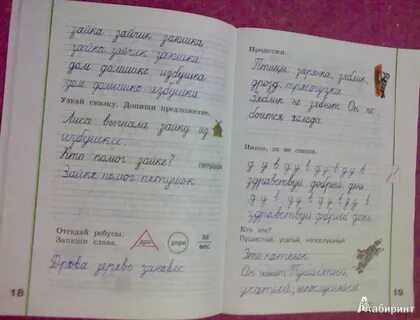 зайка зайчик заюшка
зайка зайчик заюшка
дом домишко избушка
дом домишко избушка
Узнай сказку. Допиши предложение.
Лиса выгнала зайку из
избушкис
Кто помог зайке?
петушок
Зайке помог пятушок
Отгадай ребусы.
Запиши слова.
дро
дере
за
вес
Дрова дерево занавес
18
Продолжи.
Птицы: зарянка, зяблик,
дрозд, трясогузка.
Зяблик не зябнет. Он не
боится холода.
Пиши, да не спеши.
д у в д у в д у в д у в
здравствуй добрый день
д у в д у в д у в д у в
здравствуй добрый день
Кто это?
Пушистый, усатый, непослушный
Это
Он
19
Лабиринт